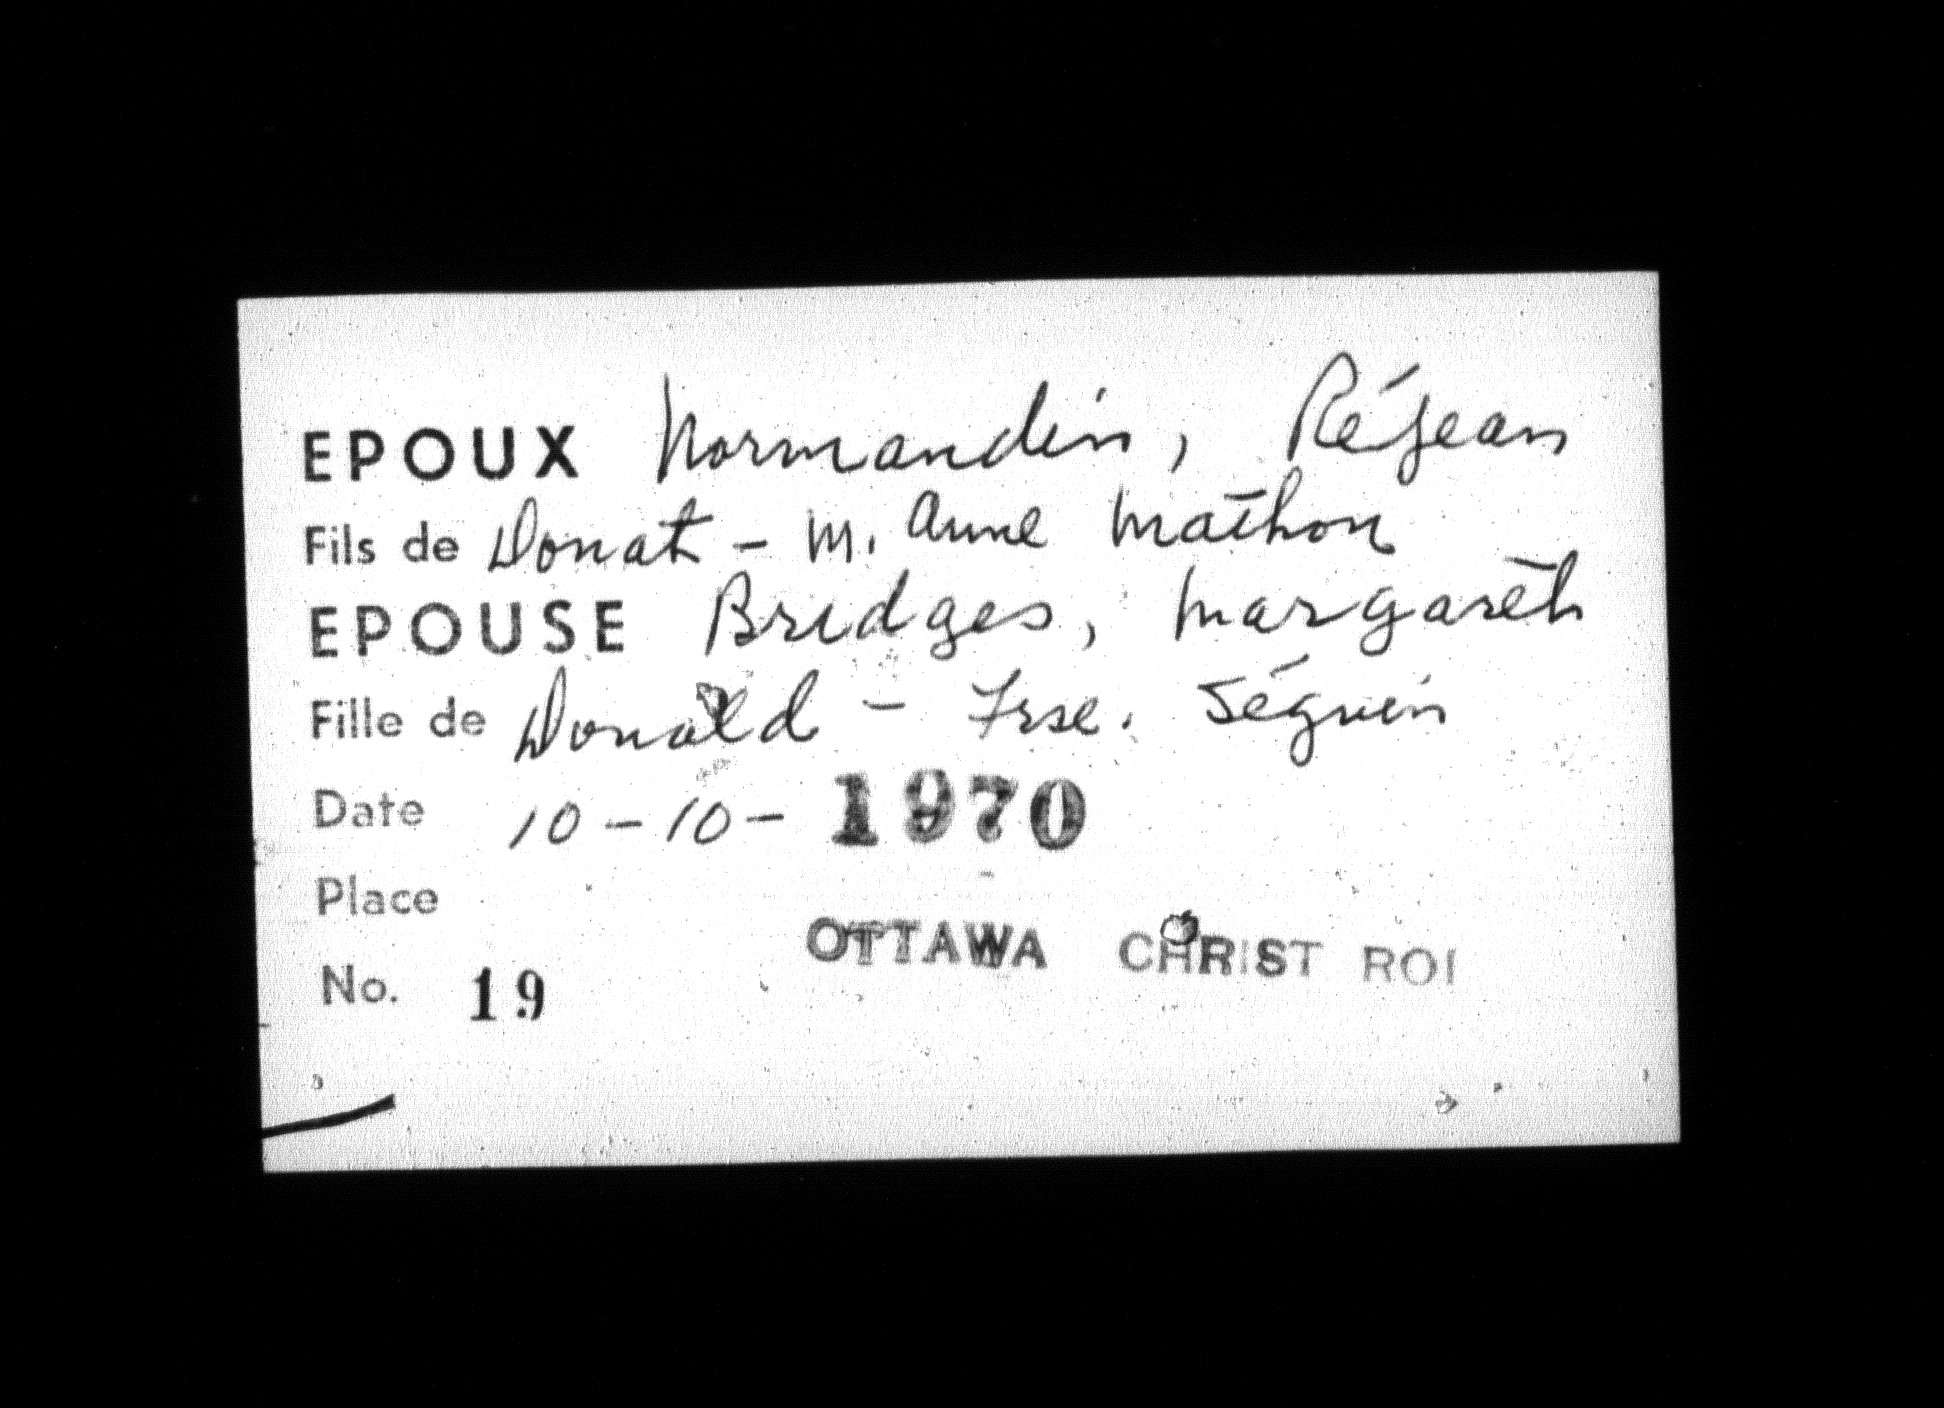 EPOUX Normandin, Réjean
Fils de Donat - M. Anne Mathon
EPOUSE Bridges, Margareth
Fille de Donald - Frse. Séguin
Date 10-10-1970
Place
OTTAWA CHRIST ROI
No. 19